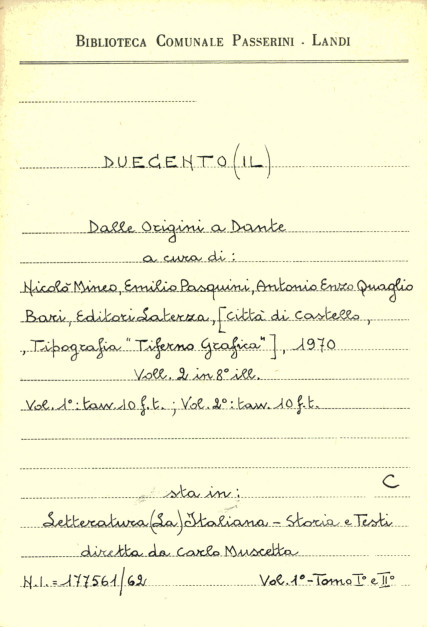 BIBLIOTECA COMUNALE PASSERINI - LANDI
DUECENTO (IL)
Dalle Origini a Dante
a cura di :
Nicolò Mineo, Emilio Pasquini, Antonio Enzo Quaglio
Bari, Editori Laterza, [Città di Castello,
, Tipografia "Tiferno Grafica"], 1970
Voll. 2 in 8° ill.
Vol. 1°: tav. 10 f.t. ; Vol. 2°: tav. 10 f.t.
C
sta in :
Letteratura (La) Italiana - Storia e Testi
diretta da Carlo Muscetta
N.I. = 177561/62 Vol. 1° - Tomo I° e II°